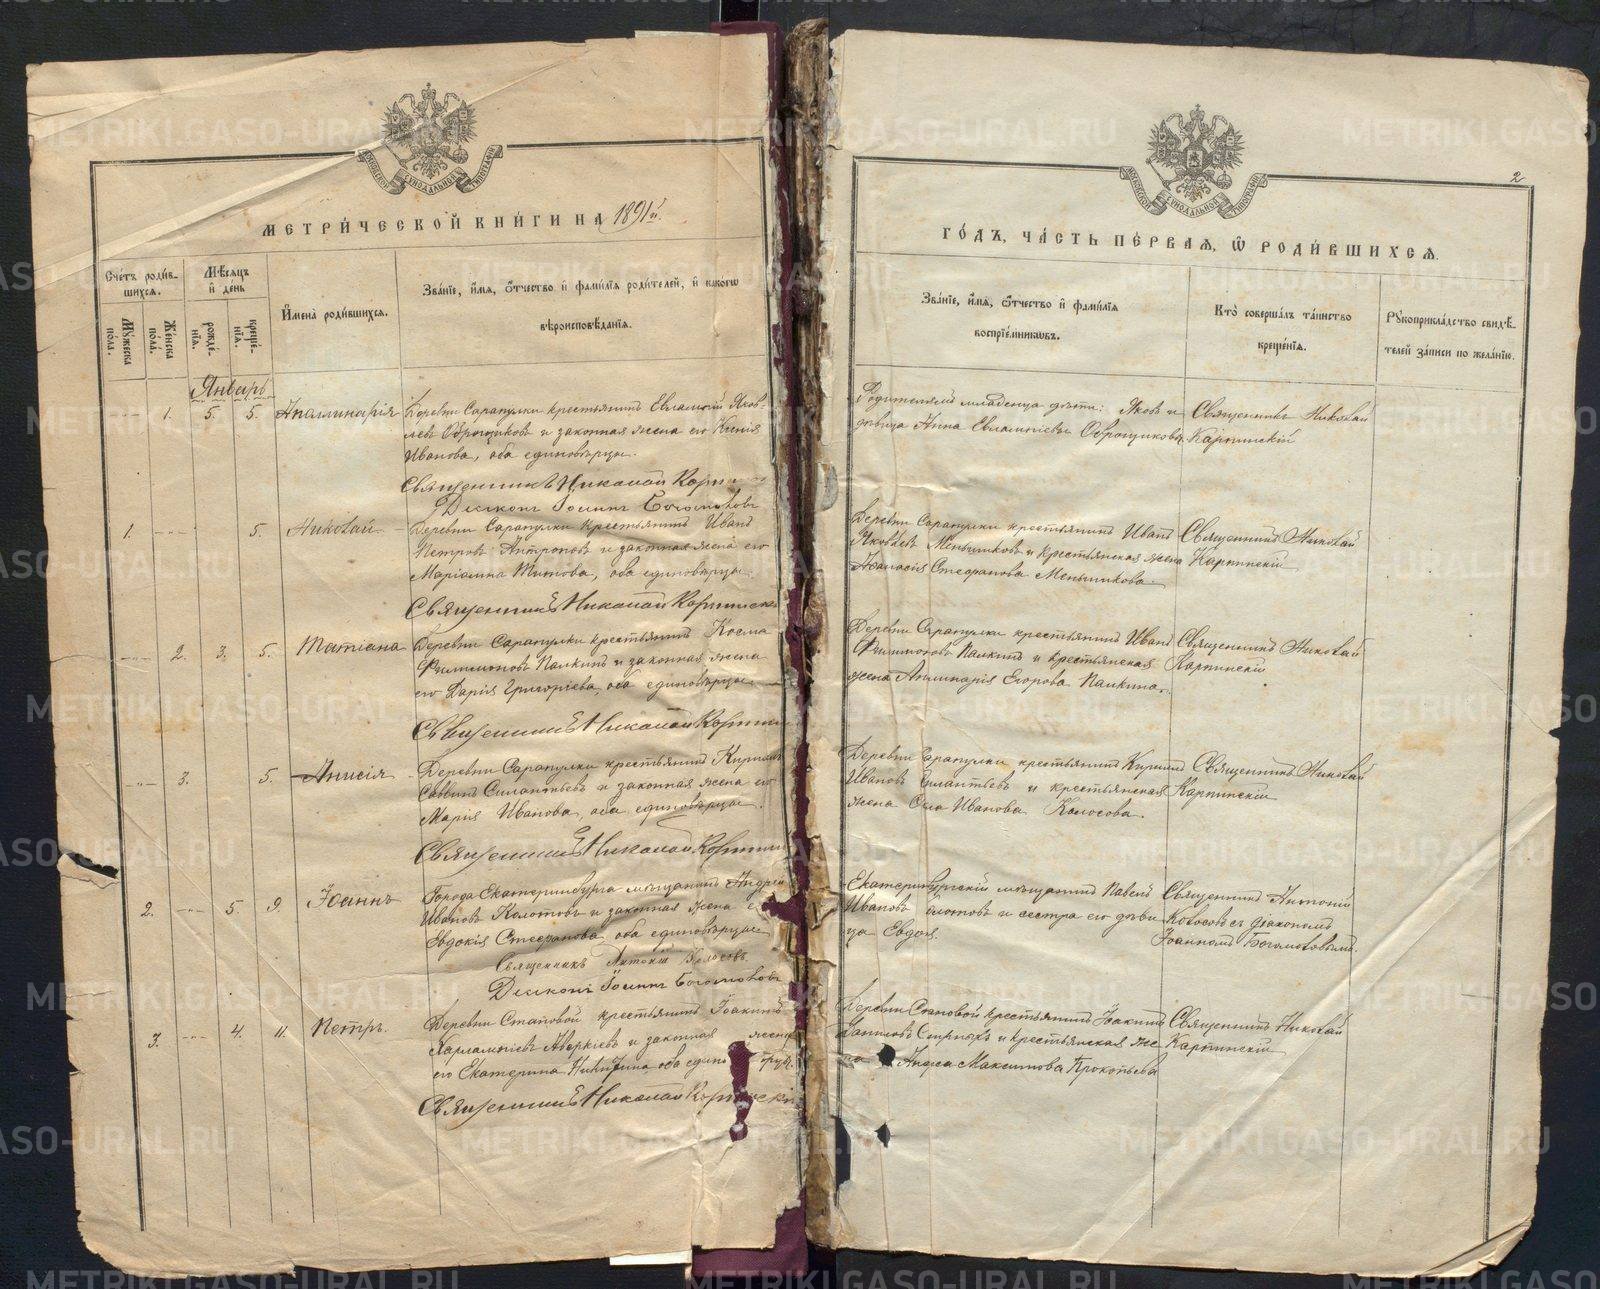 МОСКОВСКОЙ СѴНОДАЛЬНОЙ ТИПОГРАФІИ
МЕТРИ́ЧЕСКОЙ КНИ́ГИ НА 1891й.
Сче́тъ роди́в-
шихся.
Мѣ́сяцъ
и҆ де́нь
Мꙋ́жеска
по́ла.
Же́нска
по́ла.
рожде́-
нїѧ.
креще́-
нїѧ.
И҆мена̀ роди́вшихся.
Зва́нїе, и҆́мя, ѻ҆́тчество и҆ фами́лїя роди́телей, и҆ како́гѡ
вѣроисповѣ́данїя.
Январь
1. 5. 5. Аполлинарія
Деревни Сарапулки крестьянинъ Евлампій Яков-
левъ Оброщиковъ и законная жена его Ксенія
Иванова, оба единовѣрцы.
Священникъ Николай Карпи
Діаконъ Іоаннъ Богомоловъ
1. -"- 5. Николай
Деревни Сарапулки крестьянинъ Иванъ
Петровъ Антроповъ и законная жена его
Маріамна Титова, оба единовѣрцы.
Священникъ Николай Карпинскі
-"- 2. 3. 5. Татіана
Деревни Сарапулки крестьянинъ Косма
Филимоновъ Палкинъ и законная жена
его Дарія Григоріева, оба единовѣрцы.
Священникъ Николай Карпин
-"- 3. 5. Анисія
Деревни Сарапулки крестьянинъ Кирилъ
Саввинъ Силантьевъ и законная жена его
Марія Иванова, оба единовѣрцы.
Священникъ Николай Карпин
2. -"- 5. 9. Іоаннъ
Города Екатеринбурга мѣщанинъ Андрей
Ивановъ Колотовъ и законная жена е
Евдокія Стефанова, оба единовѣрцы
Священникъ Антоній Колосовъ
Діаконъ Іоаннъ Богомоловъ
3. -"- 4. 11. Петръ.
Деревни Становой крестьянинъ Іоакимъ
Харлампіевъ Аверкіевъ и законная жена
его Екатерина Никитина, оба един рцы.
Священникъ Николай Кар скі
МОСКОВСКОЙ СѴНОДАЛЬНОЙ ТИПОГРАФІИ
2
ГО́ДЪ, ЧА́СТЬ ПЕ́РВАЯ, Ѽ РОДИ́ВШИХСЯ.
Зва́нїе, и҆́мя, ѻ҆́тчество и҆ фами́лїя
воспрїе́мникѡвъ.
Кто̀ соверша́лъ та́инство
креще́нїя.
Рꙋкоприкла́дство свидѣ́-
телей за́писи по жела́нїю.
Родителемъ младенца дѣти: Яковъ и
дѣвица Анна Евлампіевы Оброщиковы
Священникъ Николай
Карпинскій
Деревни Сарапулки крестьянинъ Иванъ
Яковлевъ Меньшиковъ и крестьянская жена
Афанасія Стефанова Меньшикова.
Священникъ Николай
Карпинскій
Деревни Сарапулки крестьянинъ Иванъ
Филимоновъ Палкинъ и крестьянская
жена Апполинарія Егорова Палкина.
Священникъ Николай
Карпинскій
Деревни Сарапулки крестьянинъ Кирилъ
Ивановъ и крестьянская
жена Иванова Колосова.
Священникъ Николай
Карпинскій
Екатеринбургскій мѣщанинъ Павелъ
Ивановъ олотовъ и сестра его дѣви-
ца Евдокія.
Священникъ Антоній
Колосовъ съ діакономъ
Іоанномъ Богомоловымъ.
Деревни Становой крестьянинъ Іоакимъ
и крестьянская же-
на Максимова Прокопьева
Священникъ Николай
Карпинскій
METRIKI.GASO-URAL.RU